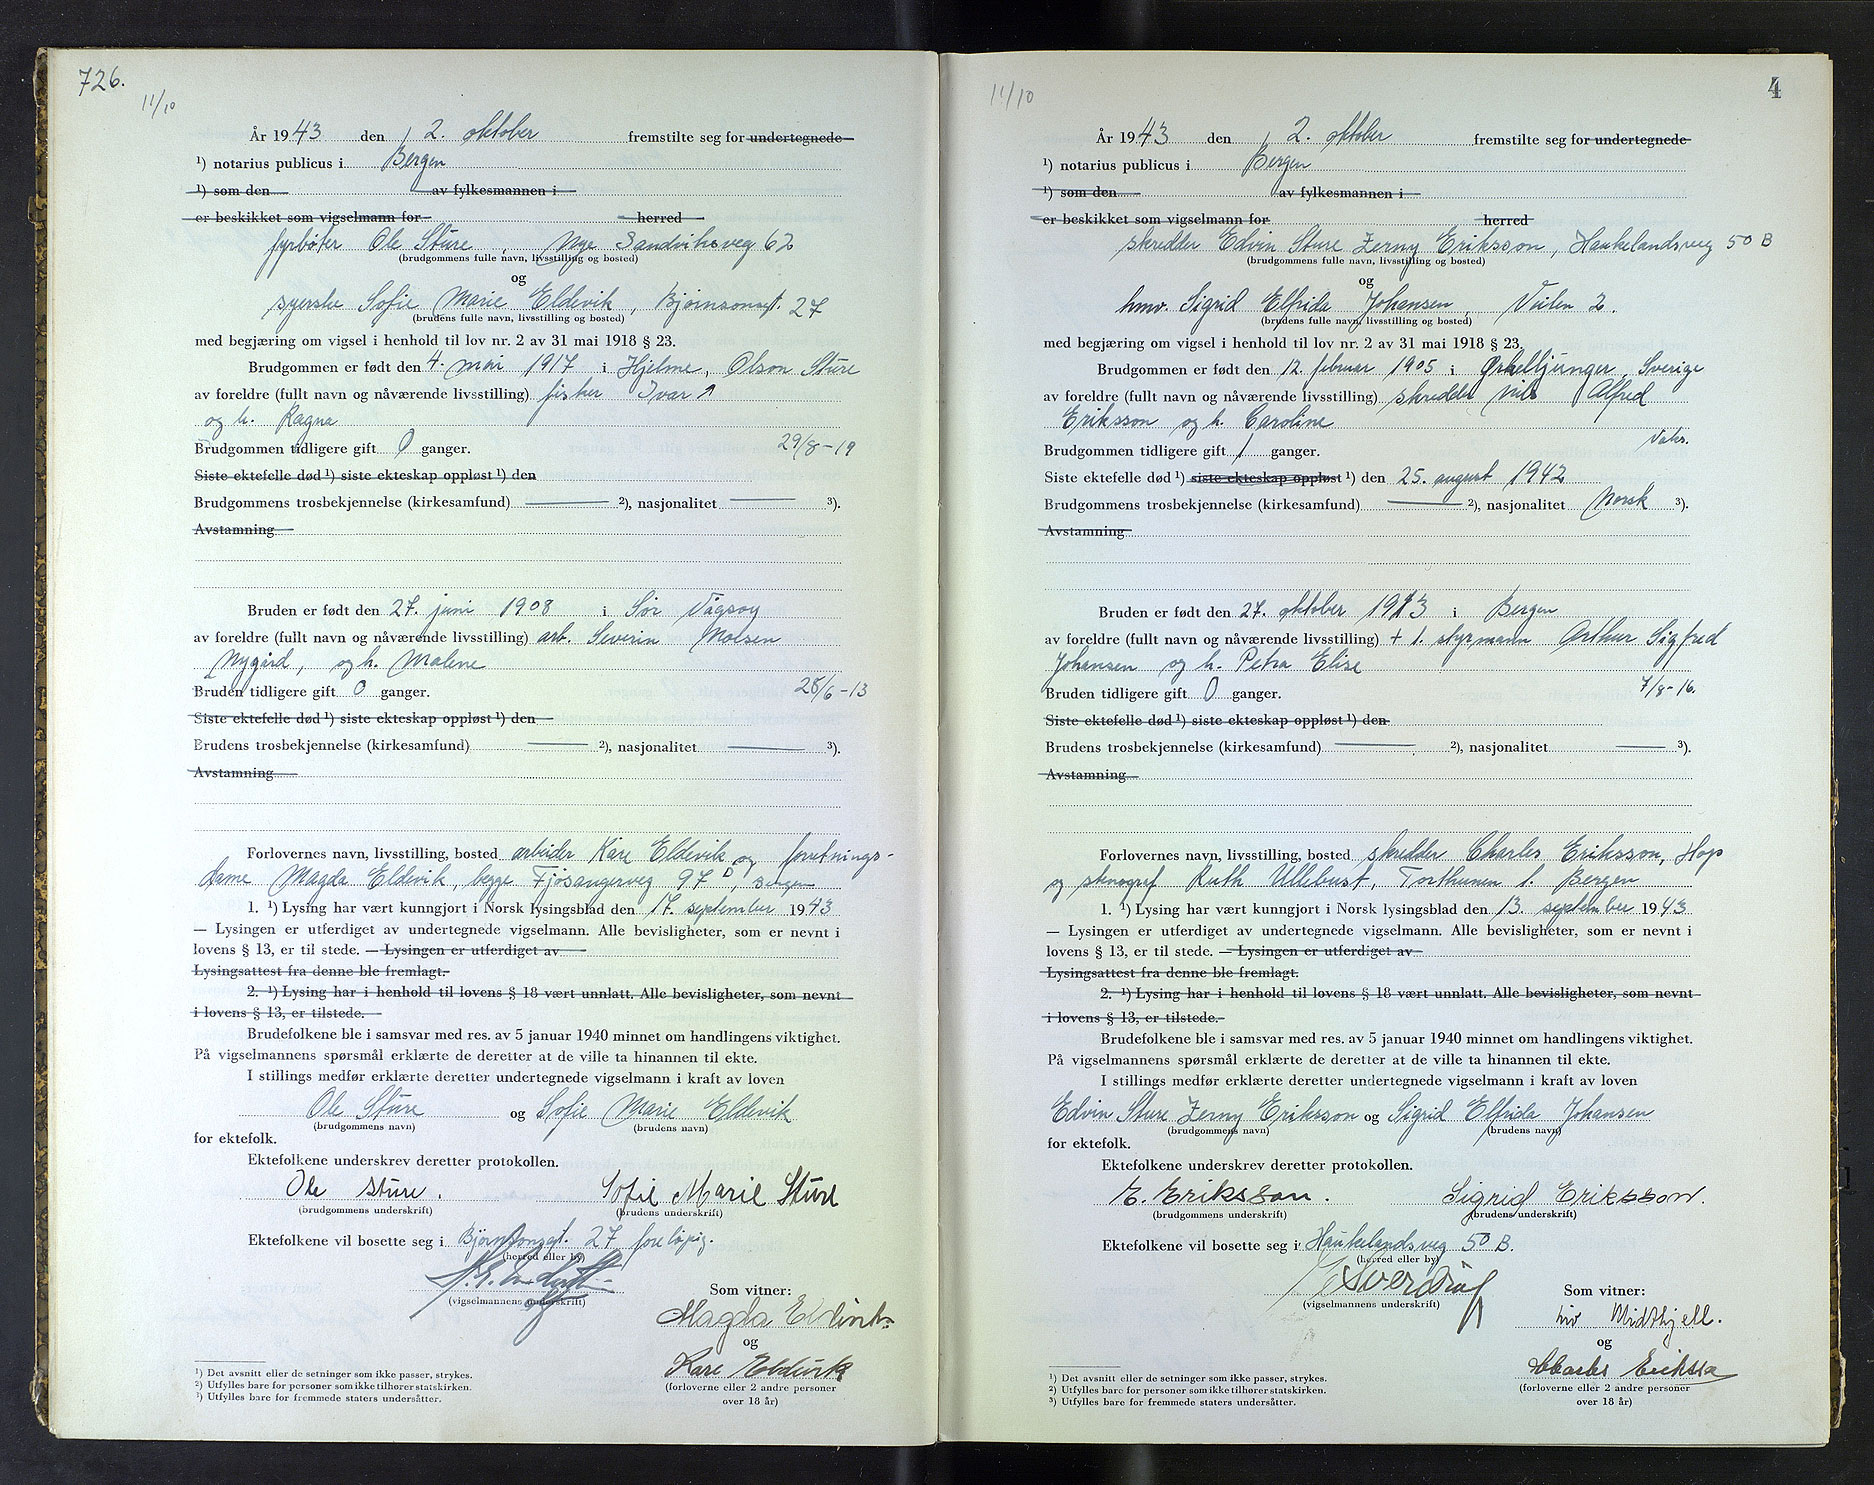 726.
11/10
År 1943 den 2. oktober fremstilte seg for undertegnede
¹) notarius publicus i Bergen
¹) som den av fylkesmannen i
er beskikket som vigselmann for herred
fyrbøter Ole Sture, Nye Sandviksveg 62
(brudgommens fulle navn, livsstilling og bosted)
og
syerske Sofie Marie Eldevik, Bjørnsonsgt. 27
(brudens fulle navn, livsstilling og bosted)
med begjæring om vigsel i henhold til lov nr. 2 av 31 mai 1918 § 23.
Brudgommen er født den 4. mai 1917 i Hjelme, Olson Sture
av foreldre (fullt navn og nåværende livsstilling) fisker Ivar
og h. Ragna
Brudgommen tidligere gift 0 ganger. 29/8-19
Siste ektefelle død ¹) siste ekteskap oppløst ¹) den
Brudgommens trosbekjennelse (kirkesamfund) ²), nasjonalitet ³).
Avstamning
Bruden er født den 27. juni 1908 i Sør Vågsøy
av foreldre (fullt navn og nåværende livsstilling) arb. Severin Molsen
Nygård, og h. Malene
Bruden tidligere gift 0 ganger. 28/6-13
Siste ektefelle død ¹) siste ekteskap oppløst ¹) den
Brudens trosbekjennelse (kirkesamfund) ²), nasjonalitet ³).
Avstamning
Forlovernes navn, livsstilling, bosted arbeider Kåre Eldevik og forretnings-
dame Magda Eldevik, begge Fjøsangerveg 97 D, Bergen
1. ¹) Lysing har vært kunngjort i Norsk lysingsblad den 17. september 1943
— Lysingen er utferdiget av undertegnede vigselmann. Alle bevisligheter, som er nevnt i
lovens § 13, er til stede. — Lysingen er utferdiget av
Lysingsattest fra denne ble fremlagt.
2. ¹) Lysing har i henhold til lovens § 18 vært unnlatt. Alle bevisligheter, som nevnt
i lovens § 13, er tilstede.
Brudefolkene ble i samsvar med res. av 5 januar 1940 minnet om handlingens viktighet.
På vigselmannens spørsmål erklærte de deretter at de ville ta hinannen til ekte.
I stillings medfør erklærte deretter undertegnede vigselmann i kraft av loven
Ole Sture og Sofie Marie Eldevik
(brudgommens navn) (brudens navn)
for ektefolk.
Ektefolkene underskrev deretter protokollen.
Ole Sture. Sofie Marie Sture
(brudgommens underskrift) (brudens underskrift)
Ektefolkene vil bosette seg i Bjørnsonsgt. 27 foreløpig.
(herred eller by)
(vigselmannens underskrift)
Som vitner:
Magda Eldevik
og
Kåre Eldevik
(forloverne eller 2 andre personer
over 18 år)
¹) Det avsnitt eller de setninger som ikke passer, strykes.
²) Utfylles bare for personer som ikke tilhører statskirken.
³) Utfylles bare for fremmede staters undersåtter.
4
11/10
År 1943 den 2. oktober fremstilte seg for undertegnede
¹) notarius publicus i Bergen
¹) som den av fylkesmannen i
er beskikket som vigselmann for herred
skredder Edvin Sture Zerny Eriksson, Haukelandsveg 50 B
(brudgommens fulle navn, livsstilling og bosted)
og
hmv. Sigrid Elfrida Johansen, Veiten 2.
(brudens fulle navn, livsstilling og bosted)
med begjæring om vigsel i henhold til lov nr. 2 av 31 mai 1918 § 23.
Brudgommen er født den 12. februar 1905 i Ørkelljunger, Sverige
av foreldre (fullt navn og nåværende livsstilling) skredder Nils Alfred
Eriksson og h. Caroline
Brudgommen tidligere gift 1 ganger. Vaks.
Siste ektefelle død ¹) siste ekteskap oppløst ¹) den 25. august 1942
Brudgommens trosbekjennelse (kirkesamfund) ²), nasjonalitet Norsk ³).
Avstamning
Bruden er født den 27. oktober 1913 i Bergen
av foreldre (fullt navn og nåværende livsstilling) + 1. styrmann Arthur Sigfred
Johansen og h. Petra Elise
Bruden tidligere gift 0 ganger. 7/8-16.
Siste ektefelle død ¹) siste ekteskap oppløst ¹) den
Brudens trosbekjennelse (kirkesamfund) ²), nasjonalitet ³).
Avstamning
Forlovernes navn, livsstilling, bosted skredder Charles Eriksson, Hop
og stenograf Ruth Ullebust, Torthunen 1. Bergen
1. ¹) Lysing har vært kunngjort i Norsk lysingsblad den 13. september 1943
— Lysingen er utferdiget av undertegnede vigselmann. Alle bevisligheter, som er nevnt i
lovens § 13, er til stede. — Lysingen er utferdiget av
Lysingsattest fra denne ble fremlagt.
2. ¹) Lysing har i henhold til lovens § 18 vært unnlatt. Alle bevisligheter, som nevnt
i lovens § 13, er tilstede.
Brudefolkene ble i samsvar med res. av 5 januar 1940 minnet om handlingens viktighet.
På vigselmannens spørsmål erklærte de deretter at de ville ta hinannen til ekte.
I stillings medfør erklærte deretter undertegnede vigselmann i kraft av loven
Edvin Sture Zerny Eriksson og Sigrid Elfrida Johansen
(brudgommens navn) (brudens navn)
for ektefolk.
Ektefolkene underskrev deretter protokollen.
E. Eriksson. Sigrid Eriksson.
(brudgommens underskrift) (brudens underskrift)
Ektefolkene vil bosette seg i Haukelandsveg 50 B.
(herred eller by)
E Sverdrup
(vigselmannens underskrift)
Som vitner:
Liv Midthjell.
og
Charles Erikssn
(forloverne eller 2 andre personer
over 18 år)
¹) Det avsnitt eller de setninger som ikke passer, strykes.
²) Utfylles bare for personer som ikke tilhører statskirken.
³) Utfylles bare for fremmede staters undersåtter.